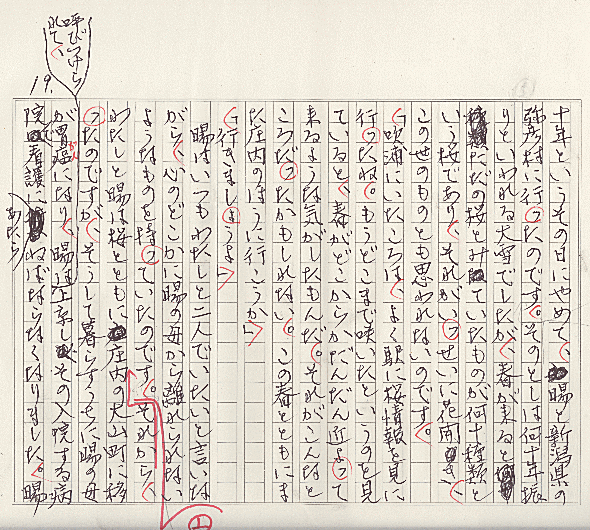 十年というその日にやめて、暘と新潟県の
弥彦村に行ったのです。そのとしは何十年振
りといわれる大雪でしたが、春が来ると
ただの桜とみていたものが何十種類と
いう桜であり、それがいっせいに花開き、
この世のものとも思われないのです。
「吹浦にいたころは、よく駅に桜情報を見に
行ったね。もうどこまで咲いたというのを見
ていると、春がどこからかだんだん近よって
来るような気がしたもんだ。それがこんなと
ころだったかもしれない。この春とともにま
た庄内のほうに行こうか」
「行きましょうよ」
暘はいつもわたしと二人でいたいと言いな
がら、心のどこかに暘の母から離れられない
ようなものを持っていたのです。それから、
わたしと暘は桜とともに庄内の大山町に移
ったのですが、そうして暮らすうちに暘の母
が胃癌になり、暘は上京しその入院する病
院で看護にあたらねばならなくなりました。暘
呼びつけら
れて、
がん
19.